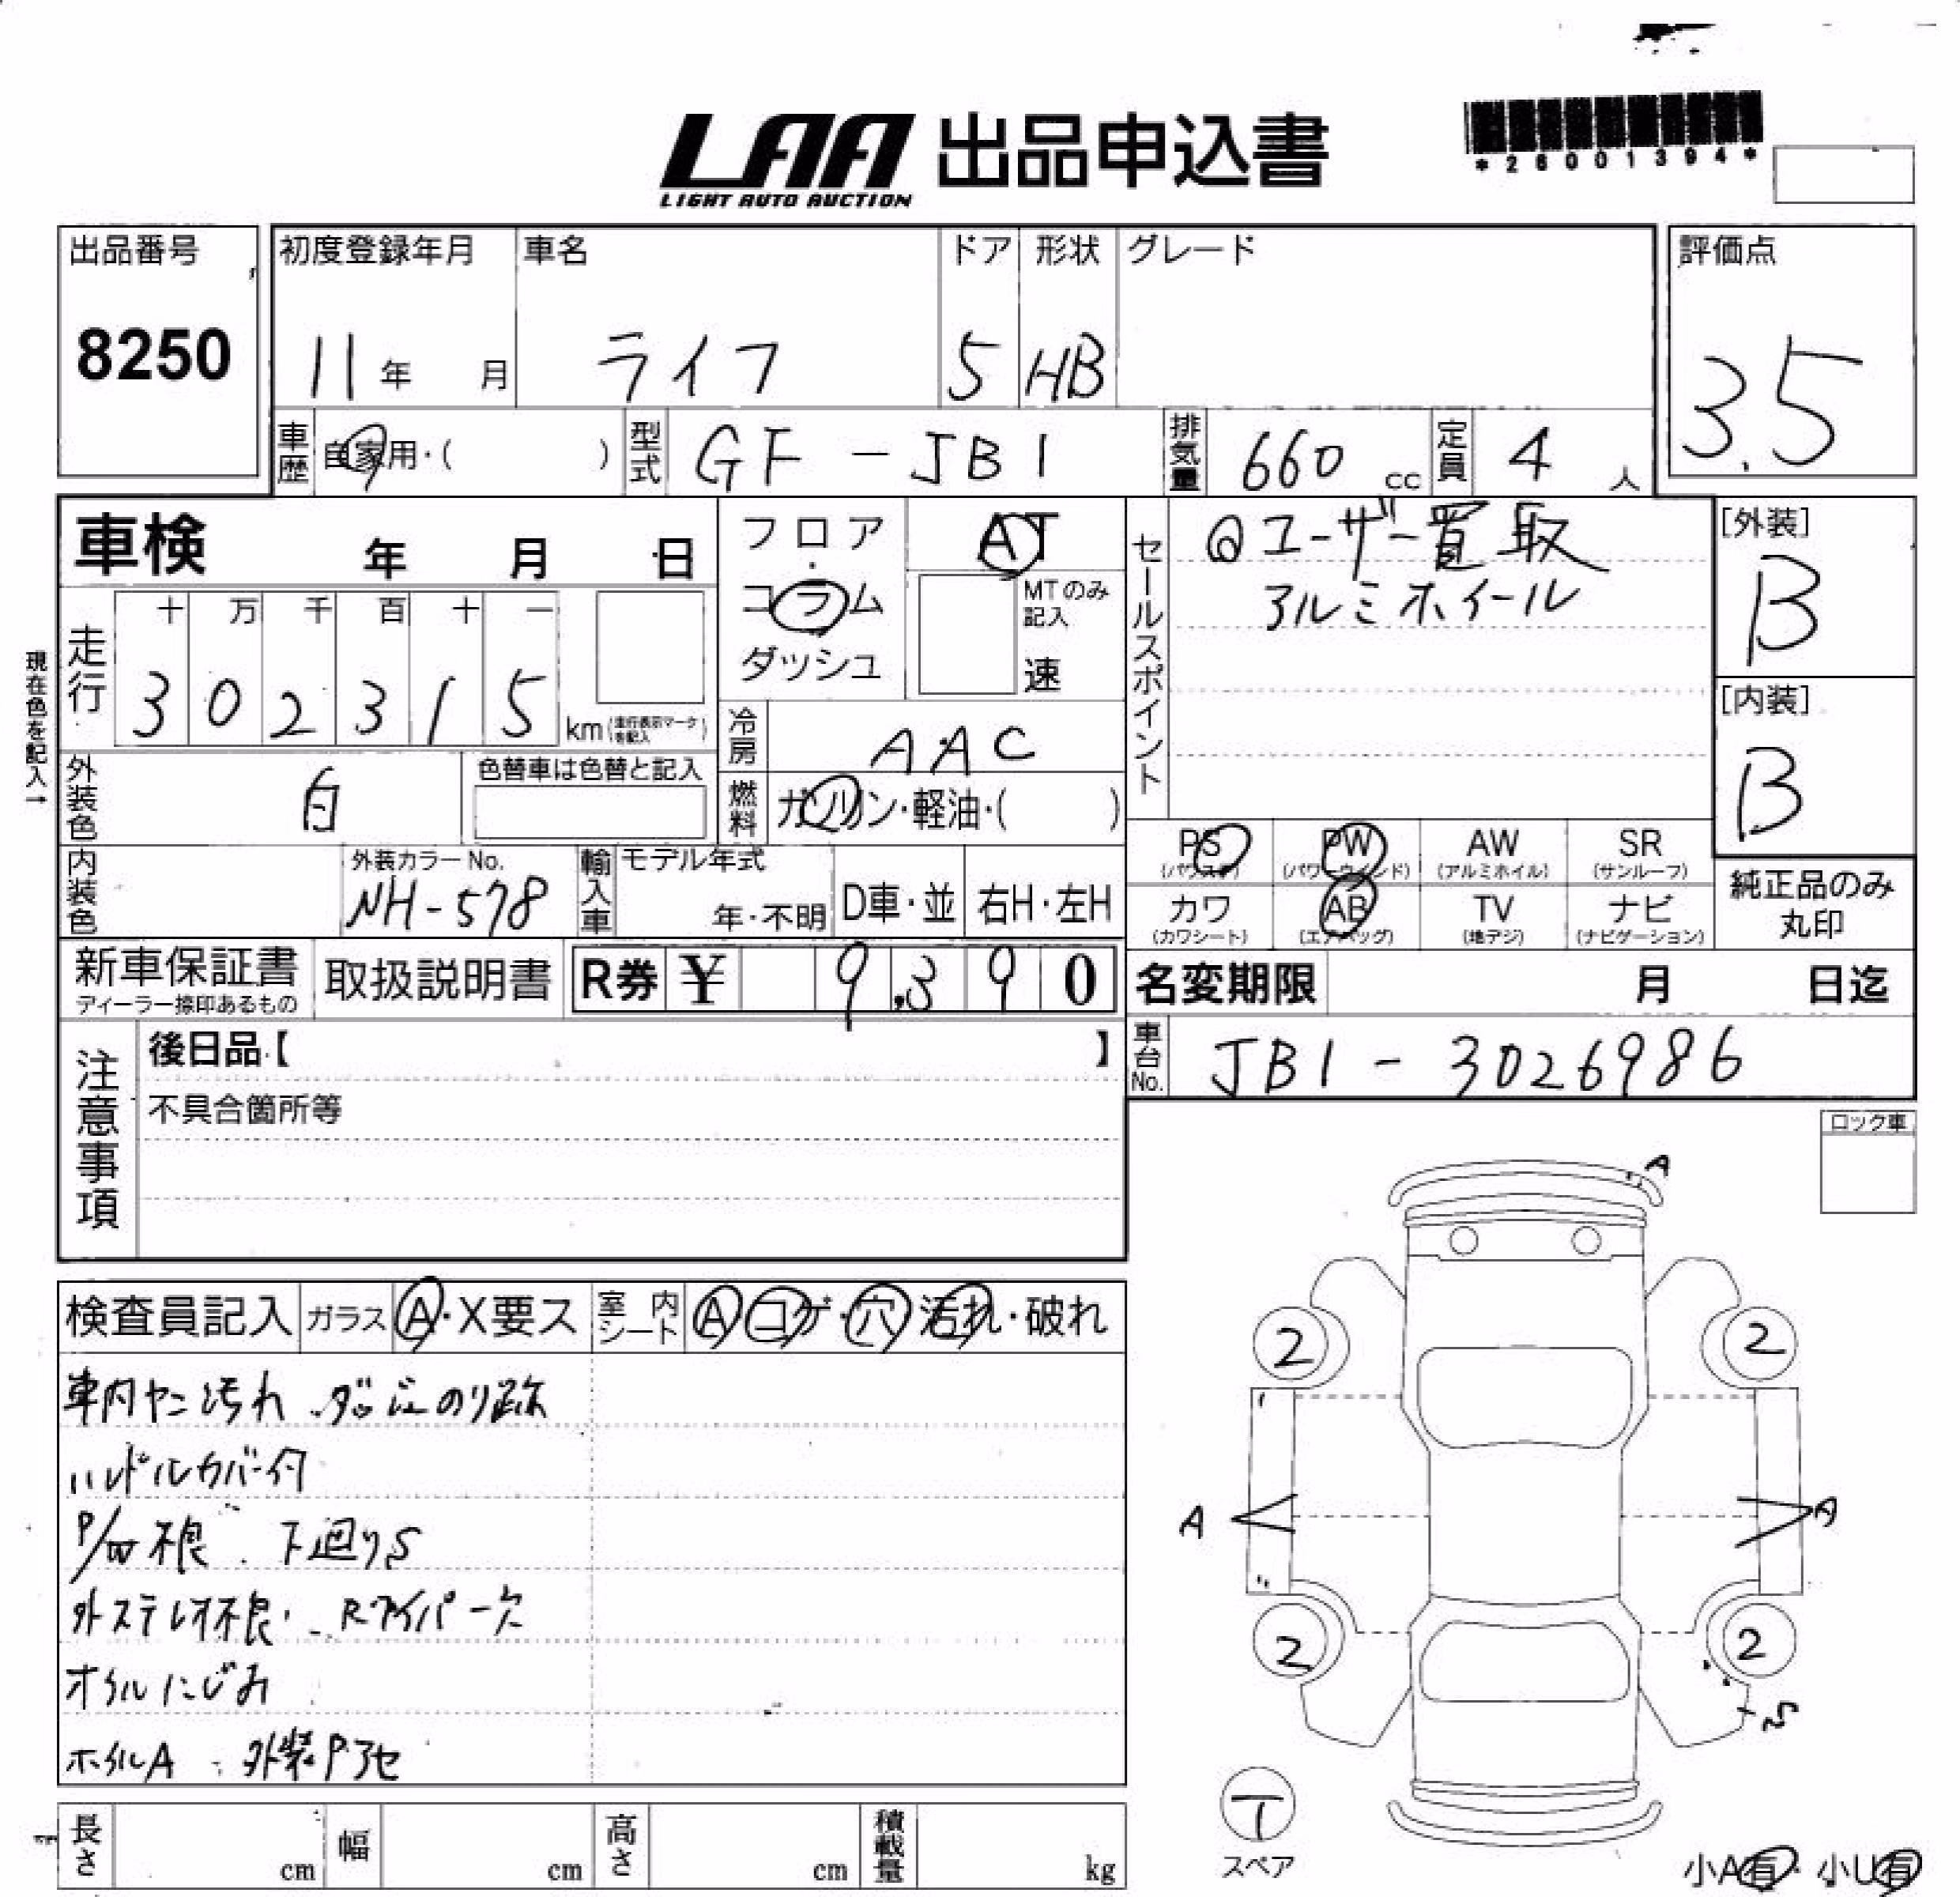 LAA 出品申込書
LIGHT AUTO AUCTION
*26001394*
出品番号
8250
初度登録年月
11年 月
車名
ライフ
ドア
5
形状
HB
グレード
評価点
3.5
車歴 自家用・( )
型式 GF-JB1
排気量 660 cc
定員 4 人
車検 年 月 日
フロア・コラム
ダッシュ
AT
MTのみ記入
速
セールスポイント
ユーザー買取
アルミホイール
[外装]
B
[内装]
B
現在色を記入→
走行
十 万 千 百 十 一
3 0 2 3 1 5 km (走行表示マークを記入)
冷房 AAC
燃料 ガソリン・軽油・( )
外装色 白
色替車は色替と記入
内装色
外装カラーNo.
NH-578
輸入車
モデル年式
年・不明
D車・並
右H・左H
PS (パワステ)
PW (パワーウインド)
AW (アルミホイル)
SR (サンルーフ)
カワ (カワシート)
AB (エアバッグ)
TV (地デジ)
ナビ (ナビゲーション)
純正品のみ
丸印
新車保証書
ディーラー捺印あるもの
取扱説明書
R券 ¥ 9,390
名変期限 月 日迄
車台No. JB1-3026986
注意事項
後日品【 】
不具合箇所等
ロック車
検査員記入
ガラス A・X要ス
室内シート A・コゲ・穴・汚れ・破れ
車内ヤニ汚れ のり跡
ハンドルカバー付
P/W不良 下廻りS
外ステレオ不良 Rワイパー欠
オイルにじみ
ホイルA 外装Pアセ
A
2
2
A
A
2
2
S
T
スペア
小A有・小U有
長さ cm
幅 cm
高さ cm
積載量 kg